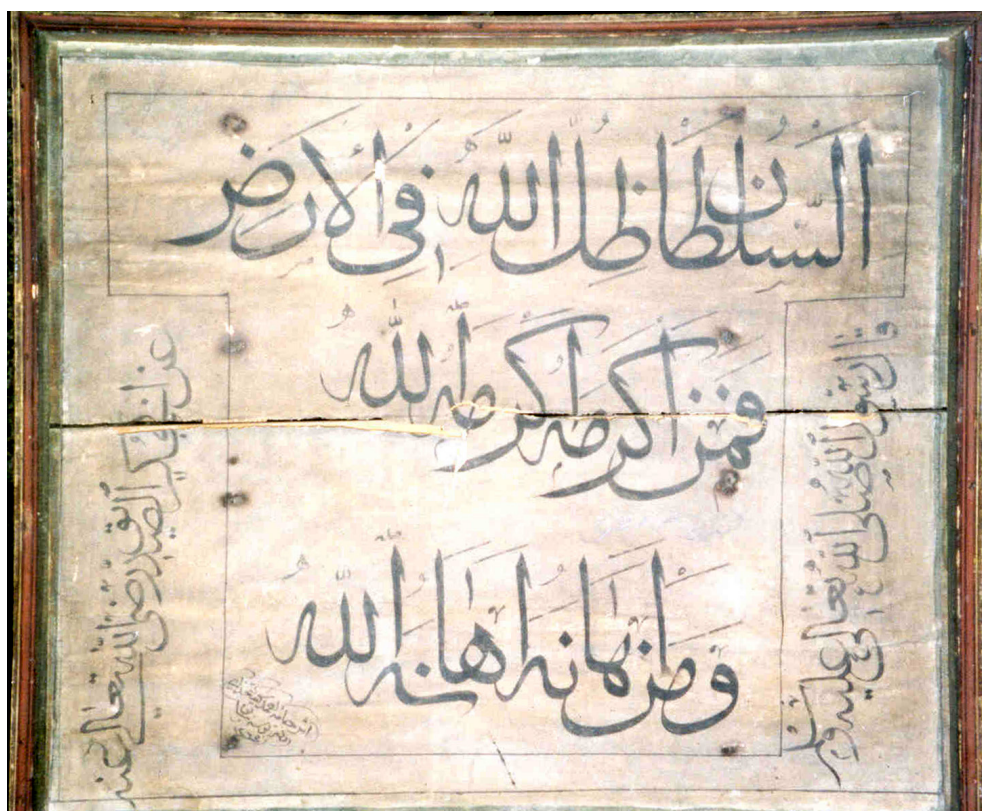 السلطان ظل الله في الارض
فمن اكرمه اكرمه الله
ومن اهانه اهانه الله
قال رسول الله صلى الله تعالى عليه وسلم
عن ابي بكر الصديق رضى الله تعالى عنه